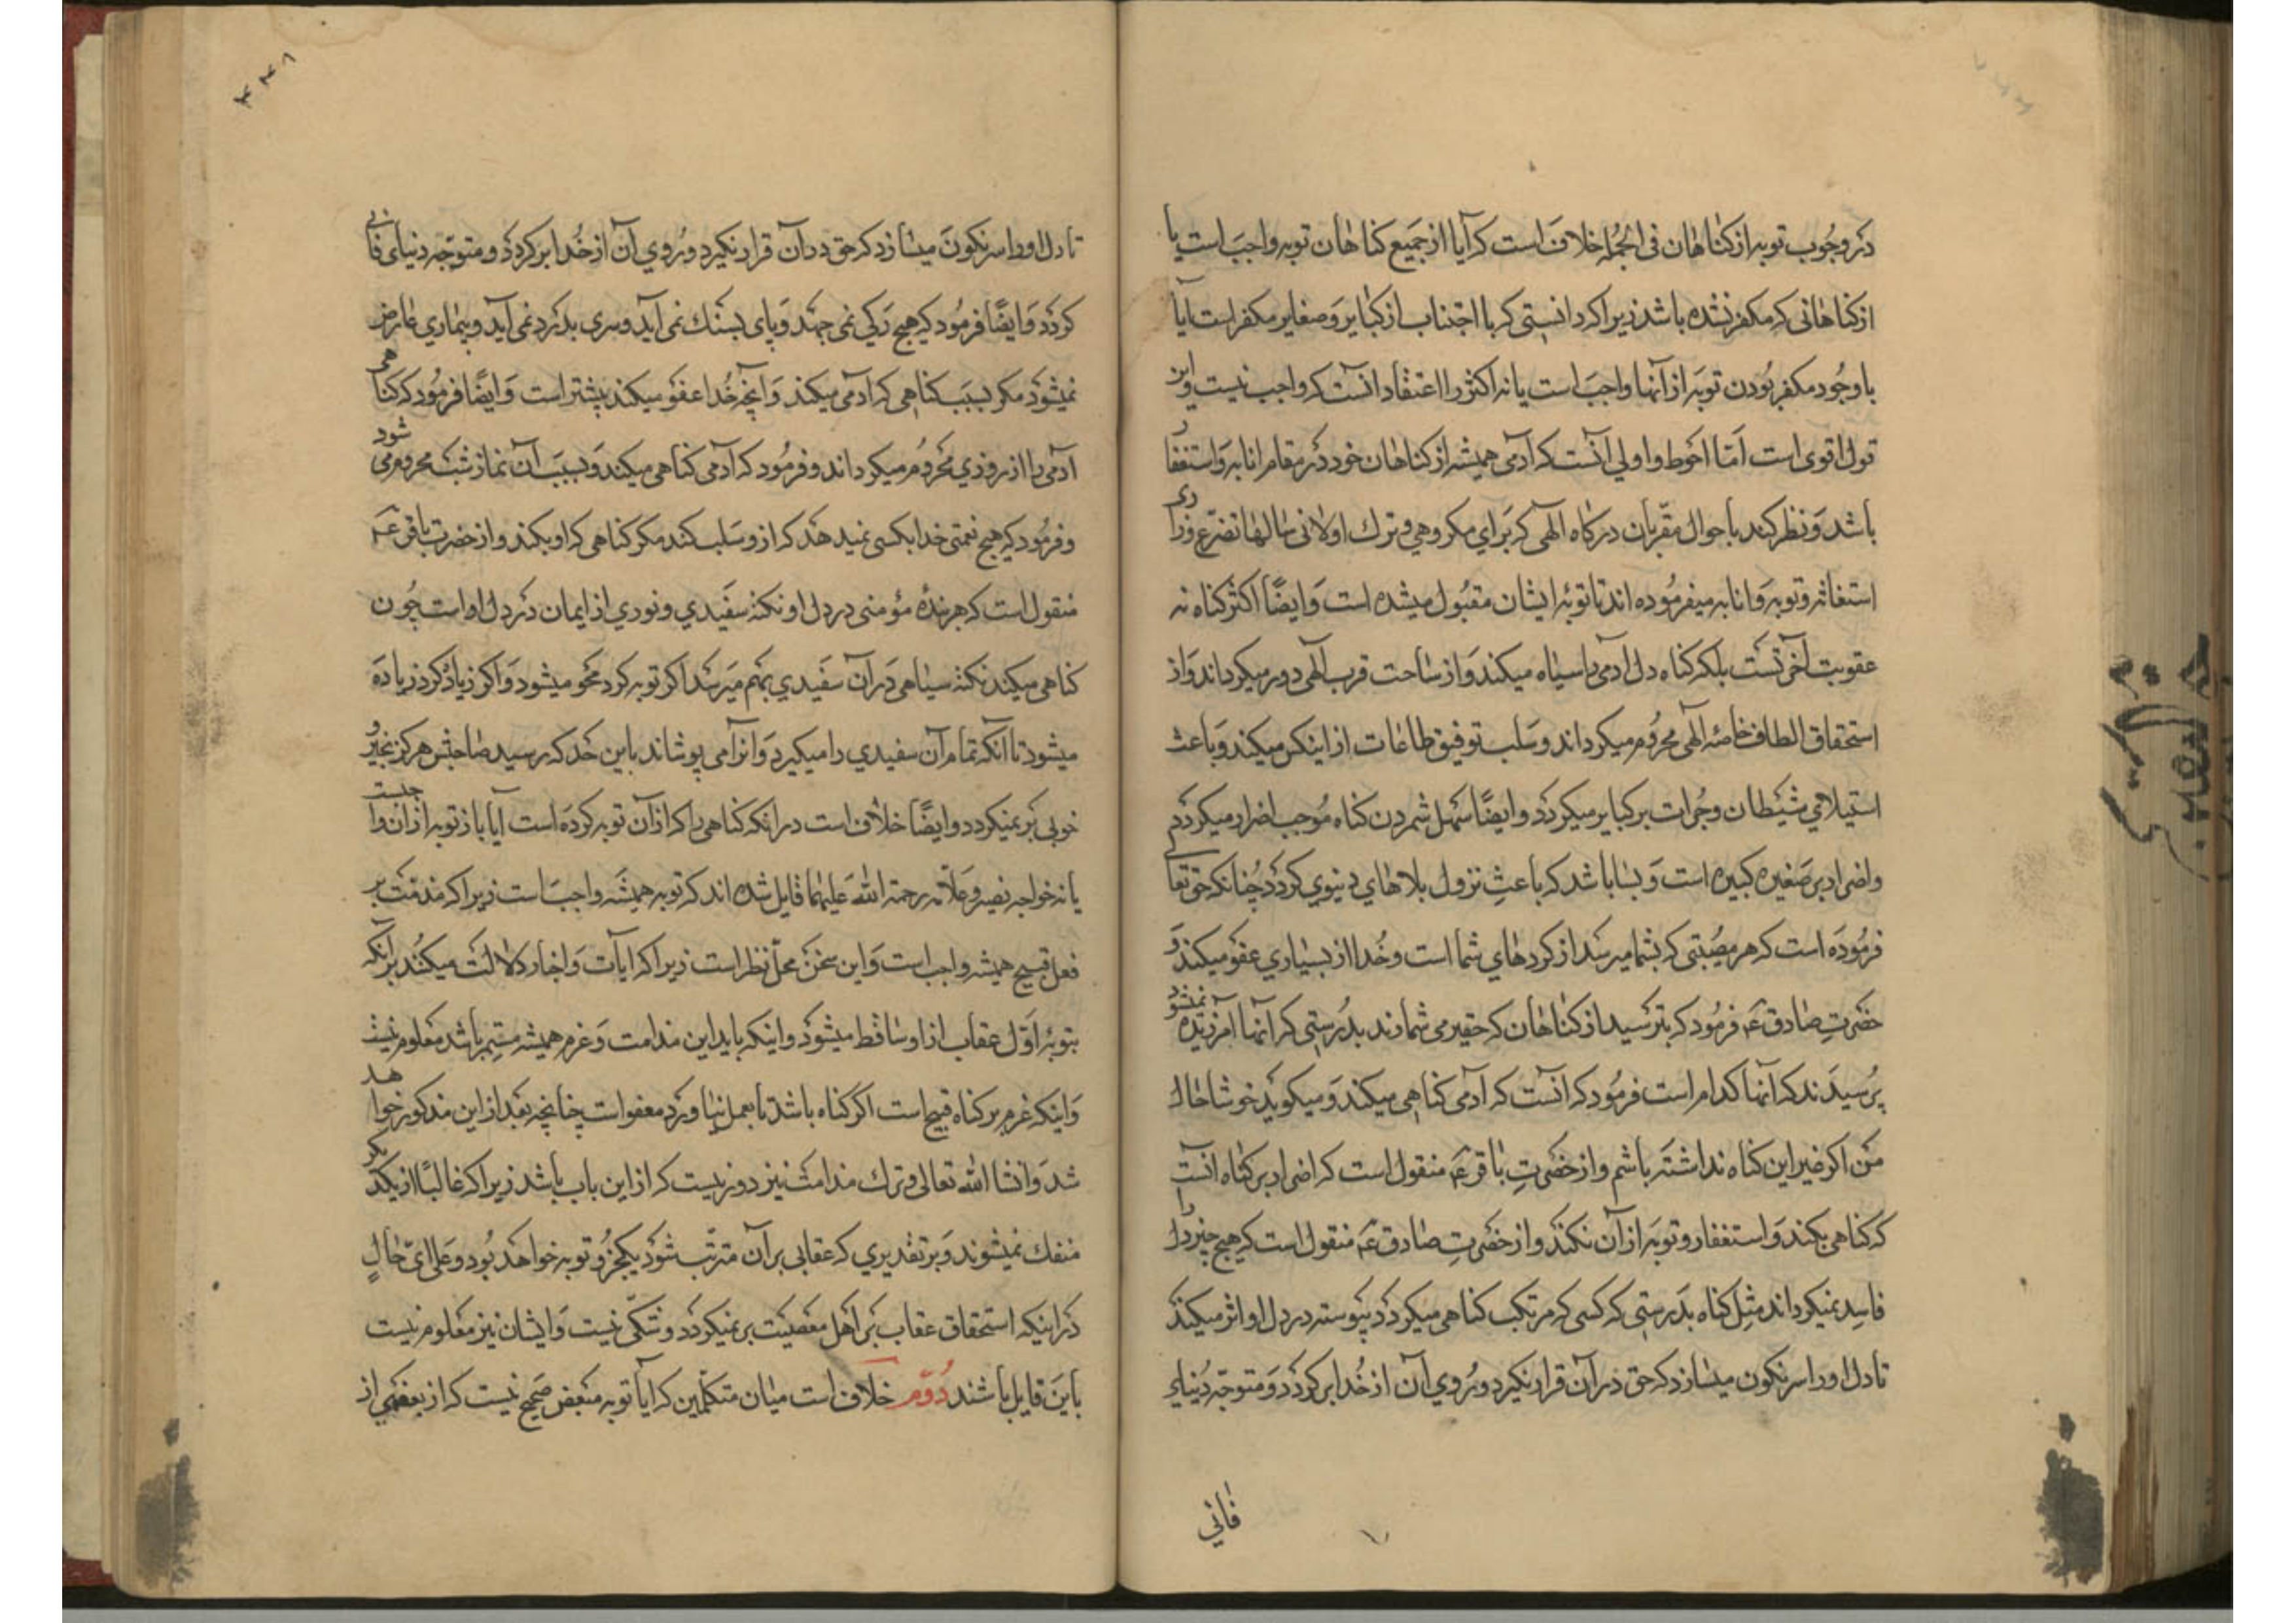 در وجوب توبه از کناهان فی الجمله خلاف است که آیا از جمیع کناهان توبه واجب است یا
از کناهانی که مکفر نشده باشد زیرا که دانستی که با اجتناب از کبایر و صغایر مکفر است آیا
با وجود مکفر بودن توبه از آنها واجب است یا نه اکثر را اعتقاد انست که واجب نیست و این
قول اقوی است اما احوط و اولی آنست که آدمی همیشه از کناهان خود در مقام انابه و استغفار
باشد و نظر کند باحوال مقربان درکاه الهی که برای مکروهی و ترک اولائی سالها تضرع و زاری
استغاثه و توبه و انابه میفرموده اند تا توبه ایشان مقبول میشده است و ایضا اکثر کناه نه
عقوبت آخرتست بلکه کناه دل آدمی را سیاه میکند و از ساحت قرب الهی دور میکرداند و از
استحقاق الطاف خاصه الهی محروم میکرداند و سلب توفیق طاعات از اینکس میکند و باعث
استیلای شیطان و جرات بر کبایر میکردد و ایضا سهل شمردن کناه موجب اضرار میکردد
و اضرار بر صغیره کبیره است و بسا باشد که باعث نزول بلاهای دنیوی کردد چنانکه حق تعالی
فرموده است که هر مصیبتی که بشما میرسد از کردهای شما است و خدا از بسیاری عفو میکند و
حضرت صادق ع فرمود که بترسید از کناهان که حقیر می شمارند بدرستی که آنها آمرزیده نمیشود
پرسیدند که آنها کدام است فرمود که انست که آدمی کناهی میکند و میکوید خوشا حال
من اکر غیر این کناه نداشته باشم و از حضرت باقر ع منقول است که اضرار بر کناه آنست
که کناهی بکند و استغفار و توبه از آن نکند و از حضرت صادق ع منقول است که هیچ چیز دل را
فاسد نمیکرداند مثل کناه بدرستی که کسی که مرتکب کناهی میکردد پیوسته در دل او اثر میکند
تا دل او را سرنکون میسازد که حق در آن قرار نکیرد و روی آن از خدا بر کردد و متوجه دنیای
فانی
۳۴۸
تا دل او را سرنکون میسازد که حق در آن قرار نکیرد و روی آن از خدا بر کردد و متوجه دنیای فانی
کردد و ایضا فرمود که هیچ رکی نمی جهد و پای بسنک نمی آید و سری بدرد نمی آید و بیماری عارض
نمیشود مکر بسبب کناهی که آدمی میکند و آنچه خدا عفو میکند بیشتر است و ایضا فرمود که کناهی
آدمی را از روزی محروم میکرداند و فرمود که آدمی کناهی میکند و بسبب آن نماز شب محروم می شود
و فرمود که هیچ نعمتی خدا بکسی نمیدهد که از و سلب کند مکر کناهی که او بکند و از حضرت باقر ع
منقول است که هر بنده مؤمنی در دل او نکته سفیدی و نوری از ایمان در دل او است چون
کناهی میکند نکته سیاهی در آن سفیدی بهم میرسد اکر توبه کرد محو میشود و اکر زیاد کرد زیاده
میشود تا آنکه تمام آن سفیدی را میکیرد و آنرا می پوشاند باین حد که رسید صاحبش هرکز بخیر و
خوبی بر نمیکردد و ایضا خلاف است در انکه کناهی را که از آن توبه کرده است آیا باز توبه از آن واجبست
یا نه خواجه نصیر و علامه رحمة الله علیهما قایل شده اند که توبه همیشه واجب است زیرا که مذمت بر
فعل قبیح همیشه واجب است و این سخن محل نظر است زیرا که ایات و اخبار دلالت میکند بر آنکه
بتوبه اول عقاب از او ساقط میشود و اینکه باید این مدامت و عزم همیشه مستمر باشد معلوم نیست
و اینکه عزم بر کناه قبیح است اکر کناه باشد تا بعمل نیاورد معفو است چنانچه بعد از این مذکور خواهد
شد و انشا الله تعالی و ترک مدامت نیز دور نیست که از این باب باشد زیرا که غالبا از یکدیکر
منفک نمیشوند و بر تقدیری که عقابی بر آن مترتب شود یکجزو توبه خواهد بود و علی ای حال
در اینکه استحقاق عقاب بر اهل معصیت بر نمیکردد و شکی نیست و ایشان نیز معلوم نیست
باین قایل باشند دوم خلاف است میان متکلمین که آیا توبه مبعض صحیح نیست که از بعضی از